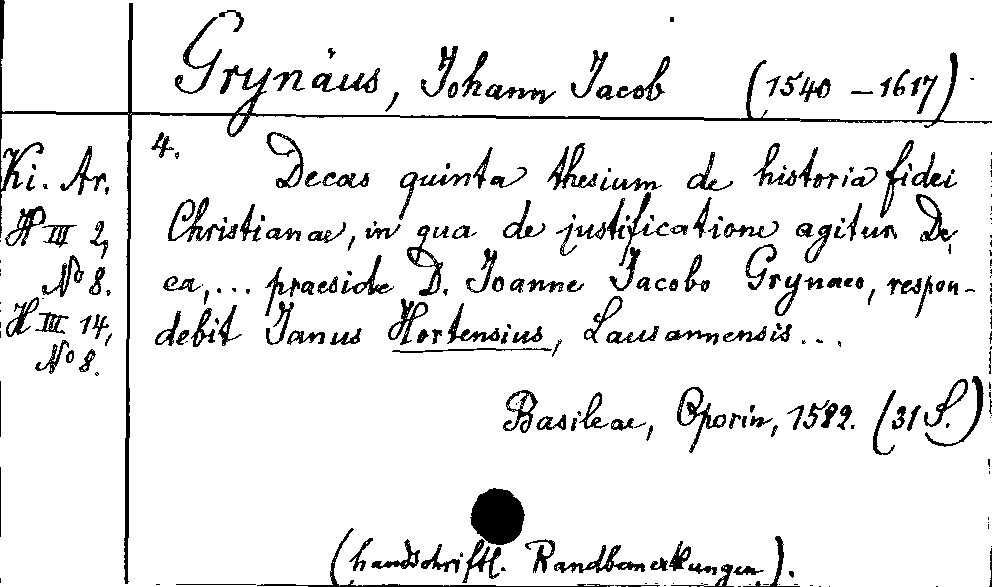 Grynäus, Johann Jacob (1540 – 1617)
4.
Decas quinta thesium de historia fidei
Christianae, in qua de justificatione agitur. De
ea, ... praeside D. Joanne Jacobo Grynaeo, respon-
debit Janus Hortensius, Lausannensis ...
Basileae, Oporin, 1582. (31 S.)
(handschriftl. Randbemerkungen).
Ki. Ar.
H III 2,
No 8.
H III 14,
No 8.